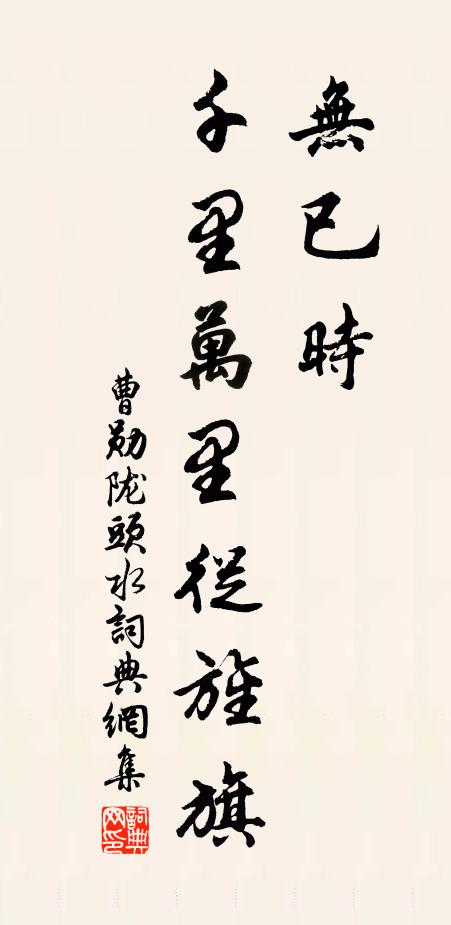 無已時
千里萬里從旌旗
曹勛陇頭水詞典網集
詞典網印